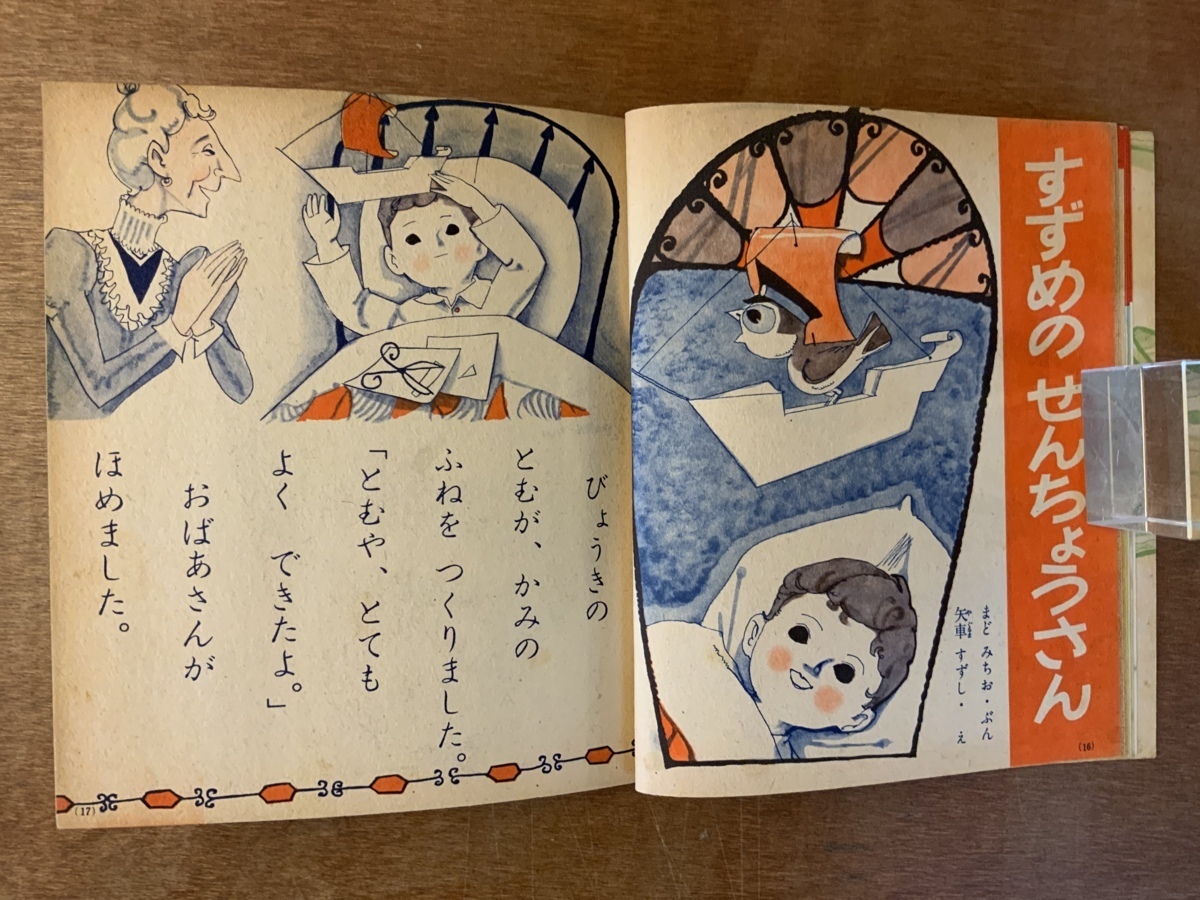 すずめの せんちょうさん
まど みちお・ぶん
矢車 すずし・え
やぐるま
(16)
びょうきの
とむが、かみの
ふねを つくりました。
「とむや、とても
よく できたよ。」
おばあさんが
ほめました。
(17)